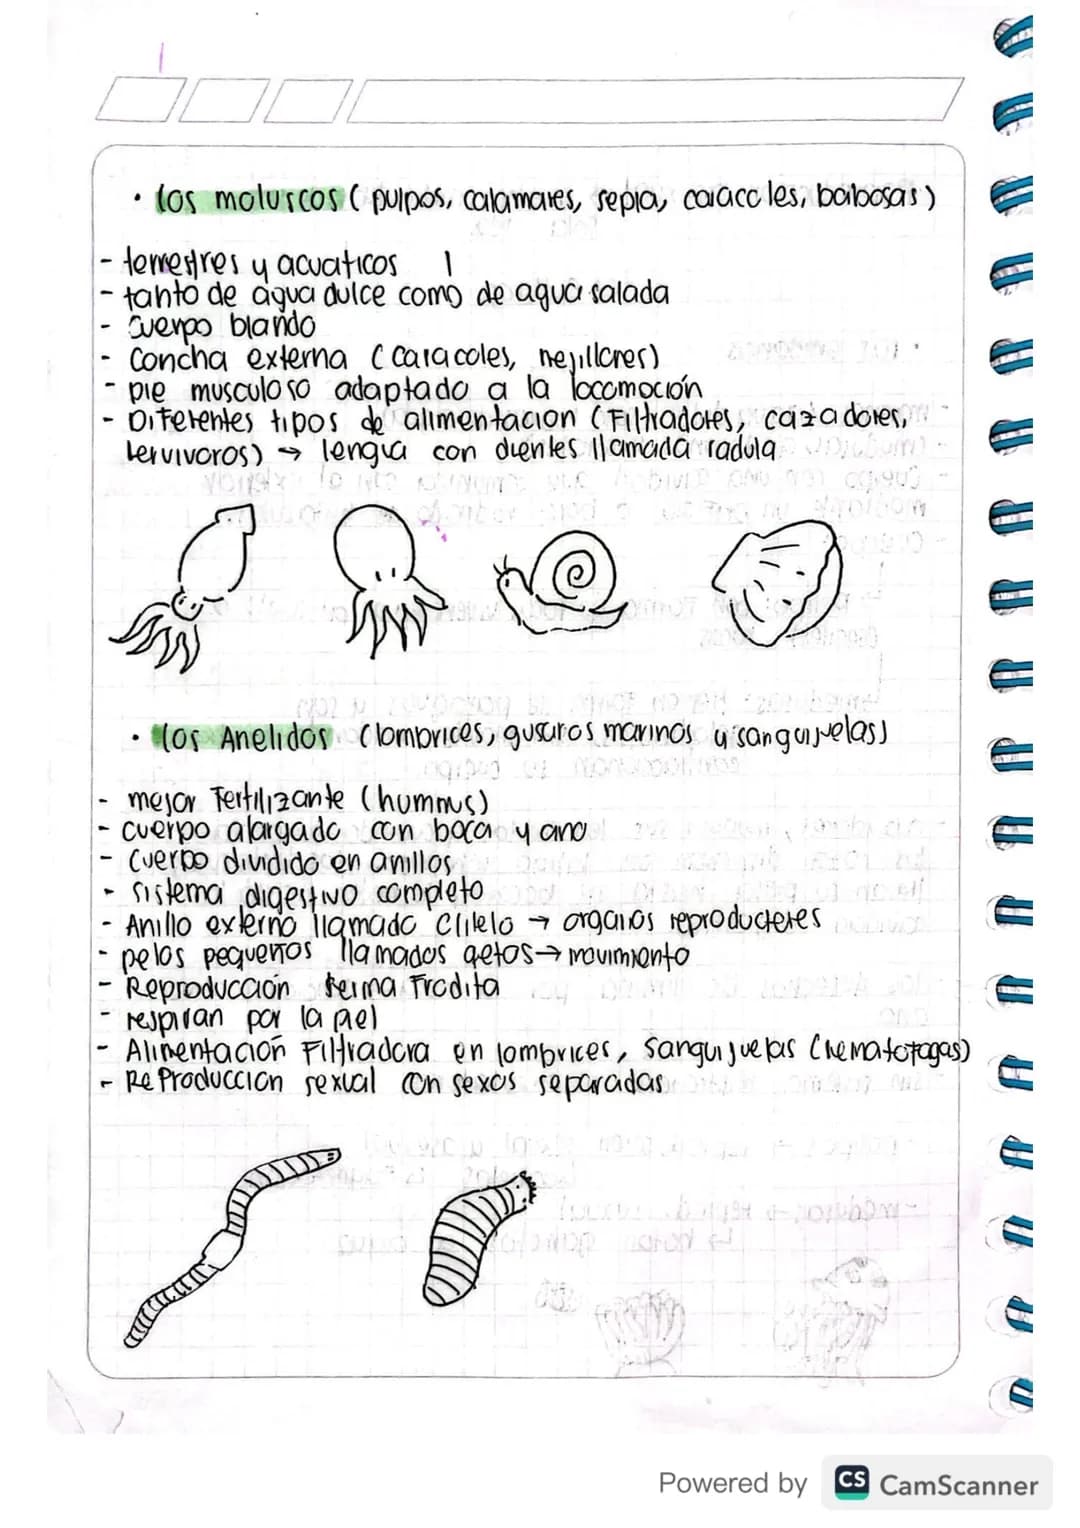 • los moluscos ( pulpos, calamares, sepia, caracoles, babosas )
- terrestres y acuaticos
- tanto de agua dulce como de agua salada
- Cuerpo blando
- Concha externa ( caracoles, mejillones)
- pie musculoso adaptado a la locomoción
- Diferentes tipos de alimentacion ( Filtradores, cazadores,
hervivoros) → lengua con dientes llamada radula
• los Anelidos (lombrices, gusanos marinos y sanguijuelas)
- mejor Fertilizante (hummus)
- cuerpo alargado con boca y ano
- Cuerpo dividido en anillos
- sistema digestivo completo
- Anillo externo llamado Clitelo → organos reproductores
- pelos pequeños llamados qetos → movimiento
- Reproducción herma Frodita
- respiran por la piel
- Alimentación Filtradora en lombrices, Sanguijuelas (hematofagas)
- ReProducción sexual con sexos separadas
Powered by CS CamScanner